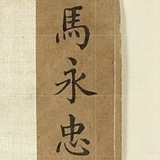 馬永忠